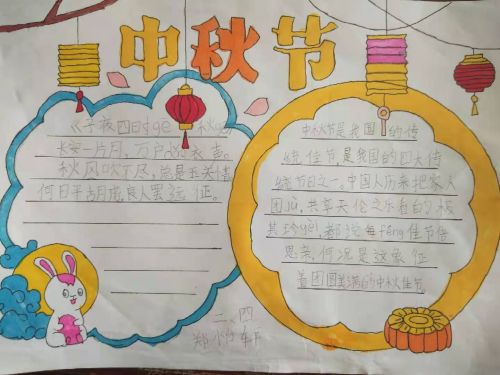 中秋节
《子夜四时ge 秋歌》
长安一片月，万户
秋风吹不尽，总是玉关情
何日平古月虏，良人罢远征。
中秋节是我国的传
统佳节，是我国的四大传
统节日之一。中国人历来把家人
团jù，共享天伦之乐看的
其珍yèi，都说每féng佳节倍
思亲，何况是这象征
着团圆美满的中秋佳节
二、四
郑 轩